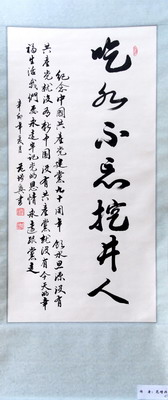 吃水不忘挖井人
纪念中国共产党建党九十周年 饮水思源没有
共产党就没有新中国没有共产党就没有今天的幸
福生活我们要永远牢记党的恩情永远跟党走
辛卯年